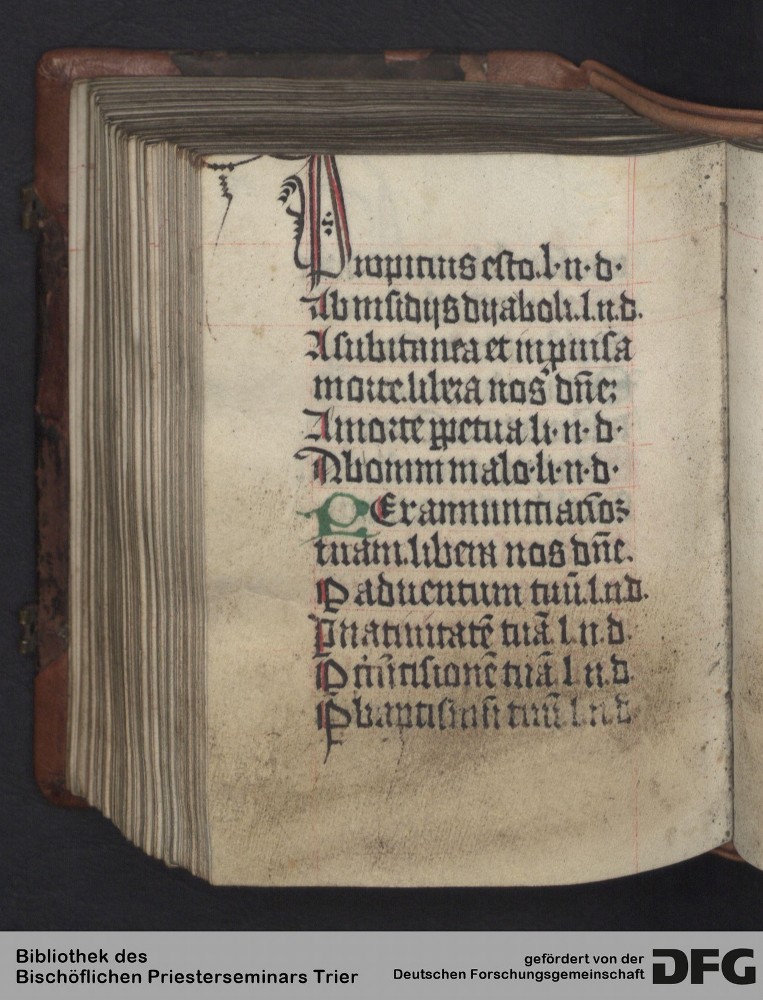 Propicius esto.l·n·d·
Ab insidijs dyaboli.l.n.d.
A subitanea et inpuisa
morte.libera nos dn̄e;
A morte ꝑpetua li·n·d·
Ab omni malo·li·n·d·
PEr annuntiacioꝫ
tuam.libera nos dn̄e.
P aduentum tuū.l.n.d.
P natiuitatē tuā l n d.
P circū̄cisionē tuā l n d.
P baptismū tuū l n d
Bibliothek des
Bischöflichen Priesterseminars Trier
gefördert von der
Deutschen Forschungsgemeinschaft
DFG